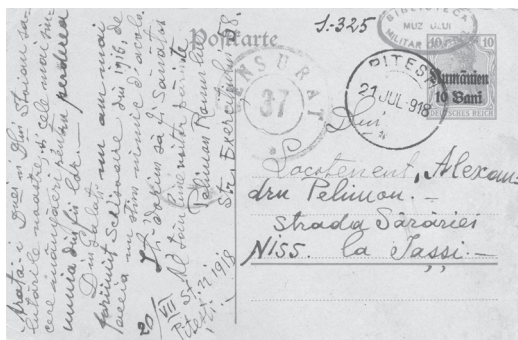 1.-325
Postkarte
BIBLIOTECA
MUZEULUI
MILITAR
10 10
Rumänien
10 Bani
DEUTSCHES REICH
CENSURAT
37
PITESTI
21 JUL. 918
Dlui
Locotenent, Alexan-
dru Pelimon.-
Strada Sărăriei
N155. la Jașși.-
Arată-i Dnei și Dlui Stoian sa-
lutările noastre, și cele mai sin-
cere mângâeri pentru perderea
unuia din fii lor.-
Din Galați nu am mai
primit scrisoare din 1916, de
aceea nu știm nimic d'acolo.
Îți dorim să fii sănătos
Al tău binevoitor părinte
Pelimon Romulus
Str. Exercițiului 58.
20/VII 1918
Pitești